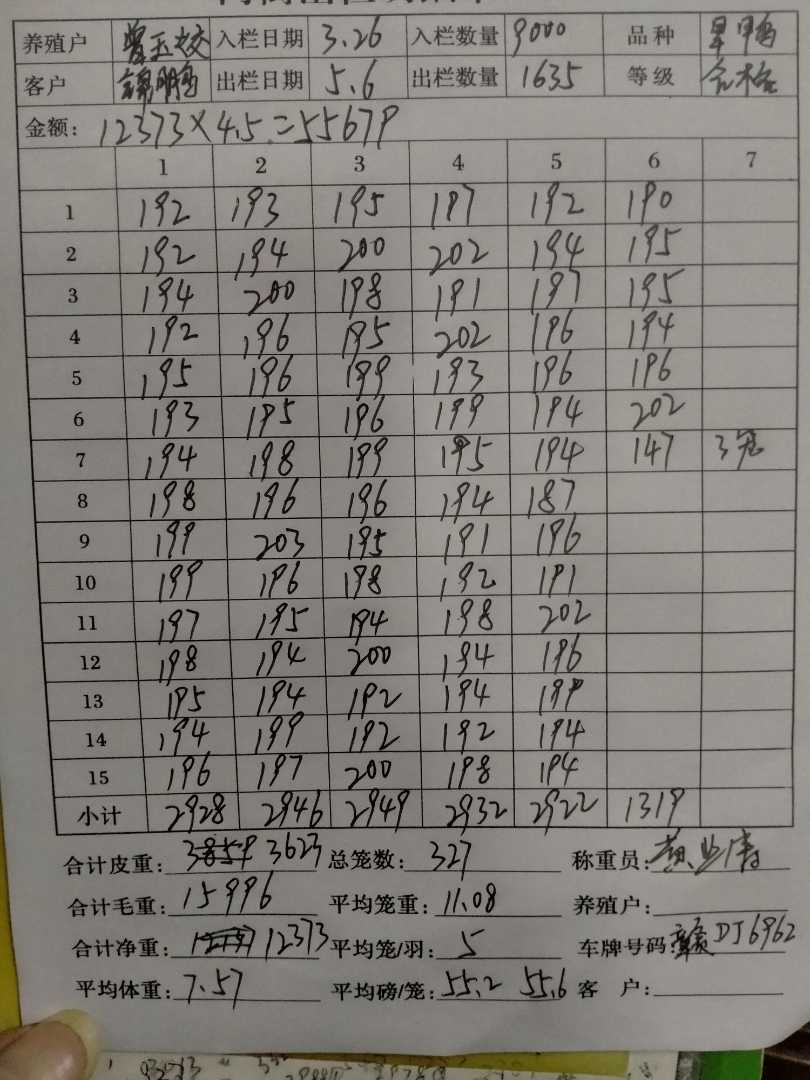 养殖户 曾玉姣 入栏日期 3.26 入栏数量 9000 品种 旱鸭
客户 锦鹏 出栏日期 5.6 出栏数量 1635 等级 合格
金额: 12373×4.5=55679
1 2 3 4 5 6 7
1 192 193 195 197 192 190
2 192 194 200 202 194 195
3 194 200 198 191 197 195
4 192 196 195 202 196 194
5 195 196 199 193 196 196
6 193 195 196 199 194 202
7 194 198 199 195 194 147 3笼
8 198 196 196 194 187
9 199 203 195 191 196
10 199 196 198 192 191
11 197 195 194 198 202
12 198 194 200 194 196
13 195 194 192 194 199
14 194 199 192 192 194
15 196 197 200 198 194
小计 2928 2946 2949 2932 2922 1319
合计皮重: 3859 3623 总笼数: 327 称重员:
合计毛重: 15996 平均笼重: 11.08 养殖户:
合计净重: 12373 平均笼/羽: 5 车牌号码: DJ6962
平均体重: 7.57 平均磅/笼: 55.2 55.6 客 户: